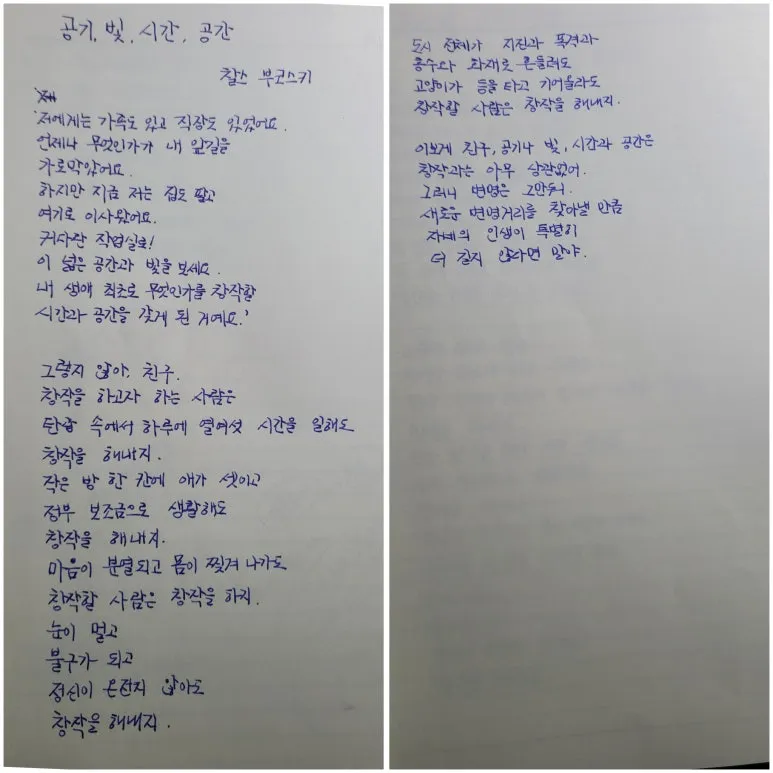 공기, 빛, 시간, 공간
찰스 부코스키
'저에게는 가족도 있고 직장도 있었어요.
언제나 무엇인가가 내 앞길을
가로막았어요.
하지만 지금 저는 집도 팔고
여기로 이사왔어요.
커다란 작업실로!
이 넓은 공간과 빛을 보세요.
내 생애 최초로 무엇인가를 창작할
시간과 공간을 갖게 된 거예요.'
그렇지 않아, 친구.
창작을 하고자 하는 사람은
탄갑 속에서 하루에 열여섯 시간을 일해도
창작을 해내지.
작은 방 한 칸에 애가 셋이고
정부 보조금으로 생활해도
창작을 해내지.
마음이 분열되고 몸이 찢겨 나가도
창작할 사람은 창작을 하지.
눈이 멀고
불구가 되고
정신이 온전치 않아도
창작을 해내지.
도시 전체가 지진과 폭격과
홍수와 화재로 흔들려도
고양이가 등을 타고 기어올라도
창작할 사람은 창작을 해내지.
이보게 친구, 공기나 빛, 시간과 공간은
창작과는 아무 상관없어.
그러니 변명은 그만두지.
새로운 변명거리를 찾아낼 만큼
자네의 인생이 특별히
더 길지 않다면 말야.